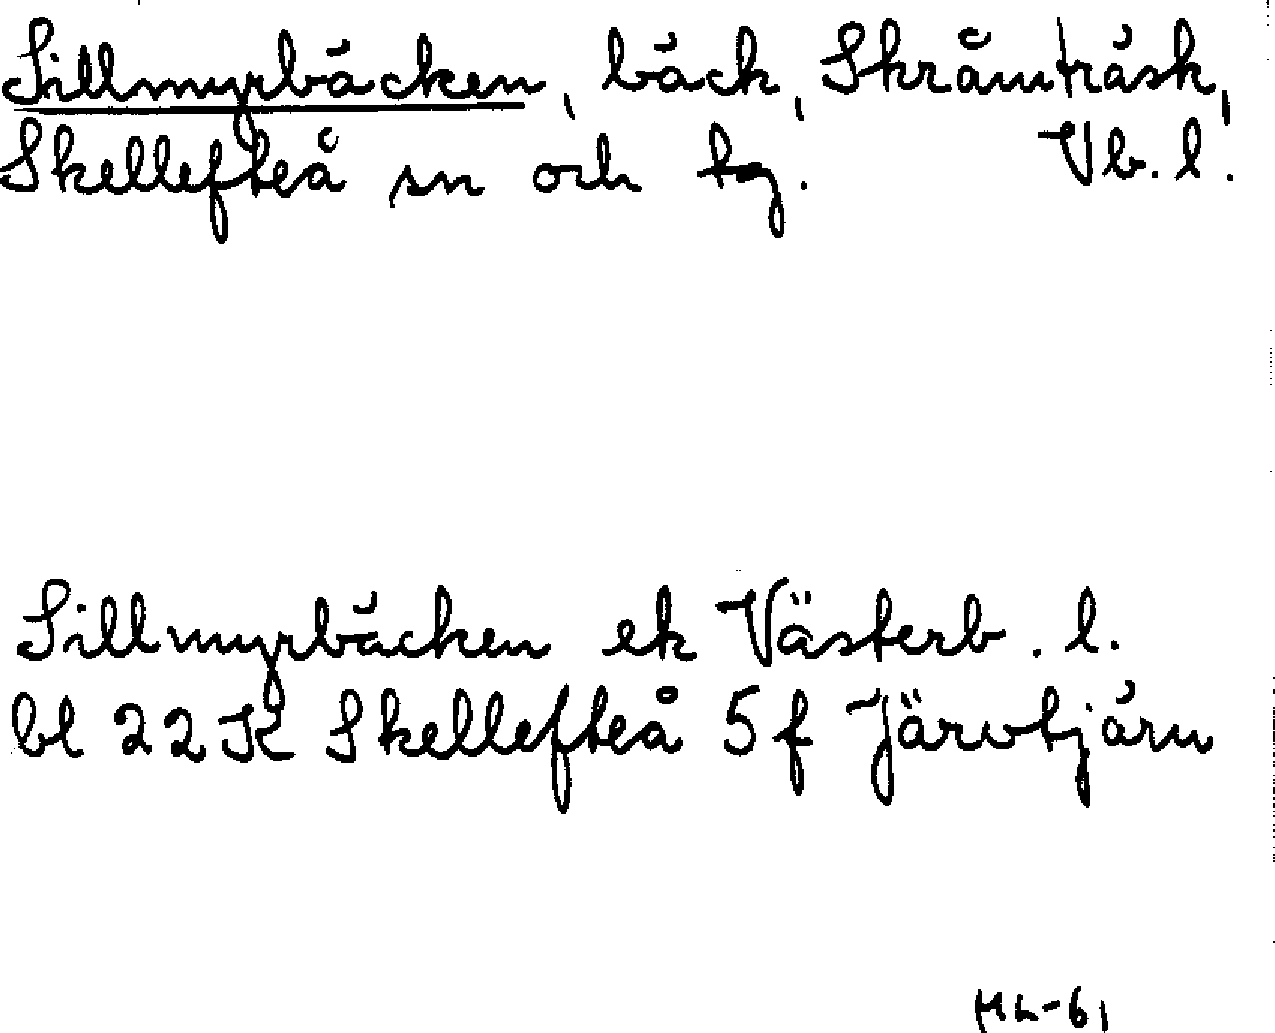 Sillmyrbäcken, bäck, Skråmträsk,
Skellefteå sn och tg. Vb. l.
Sillmyrbäcken ek Västerb. l.
bl 22K Skellefteå 5f Järvtjärn
HL-61